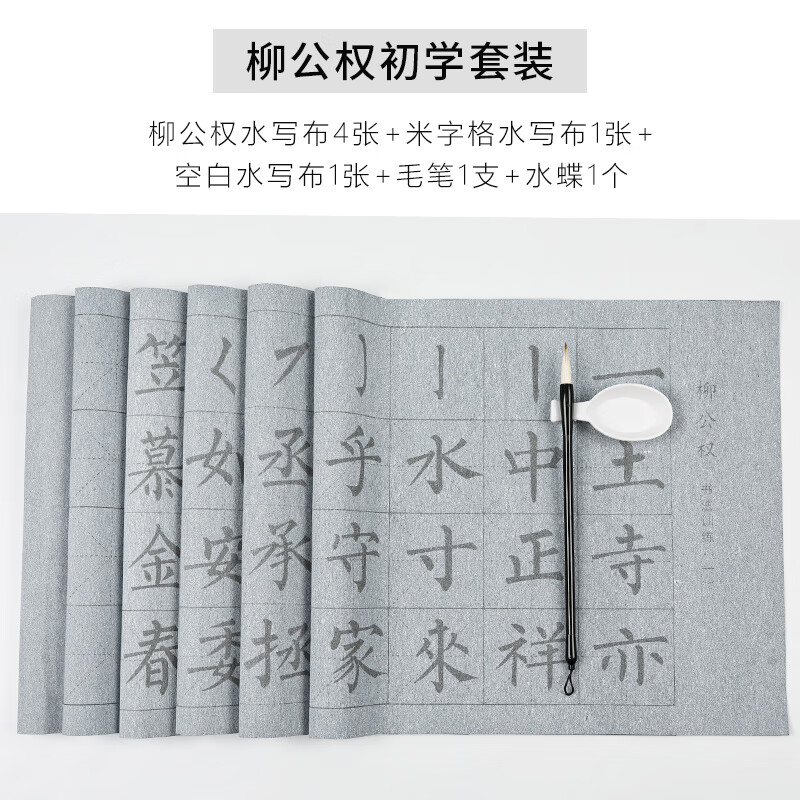 柳公权初学套装
柳公权水写布4张+米字格水写布1张+
空白水写布1张+毛笔1支+水蝶1个
笠 慕 金 春
く 如 安 委
フ 丞 承 拯
亅 乎 守 家
亅 水 寸 來
丨 中 正 祥
一 王 寺 亦
柳公权 书法训练 一